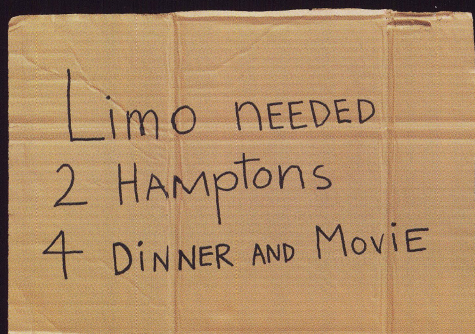 Limo NEEDED
2 HAMptons
4 DiNNER AND MoviE